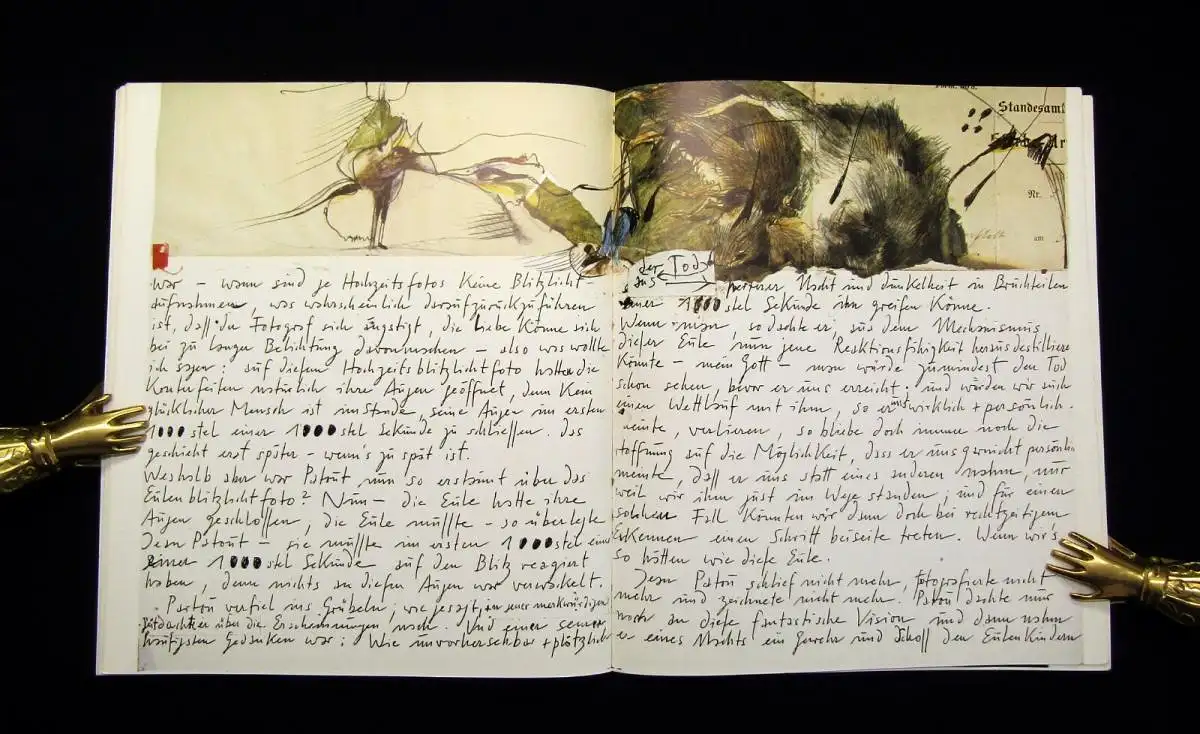 Standesamt
Nr.
am
war – wann sind je Hochzeitsfotos keine Blitzlicht-
aufnahmen, was wahrscheinlich darauf zurückzuführen
ist, daß der Fotograf sich ängstigt, die Liebe könne sich
bei zu langer Belichtung davonmachen – also was wollte
ich sagen: auf diesem Hochzeitsblitzlichtfoto hatten die
Konterfeiten natürlich ihre Augen geöffnet, denn kein
glücklicher Mensch ist imstande, seine Augen im ersten
1000stel einer 1000stel Sekunde zu schließen. Das
geschieht erst später – wenn's zu spät ist.
Weshalb aber war Patou nun so erstaunt über das
Eulenblitzlichtfoto? Nun – die Eule hatte ihre
Augen geschlossen, die Eule mußte – so überlegte
Jean Patou – sie mußte im ersten 1000stel einer
1000stel Sekunde auf den Blitz reagiert
haben, denn nichts an diesen Augen war verwackelt.
Patou verfiel ins Grübeln; wie gesagt, in seiner merkwürdigen
dachte er über die Erscheinungen nach. Und einer seiner
häufigsten Gedanken war: Wie unvorhersehbar + plötzlich
der Tod
aus Nacht und Dunkelheit in Bruchteilen
einer 1000stel Sekunde ihn greifen könne.
Wenn man, so dachte er, aus dem Mechanismus
dieser Eule nun jene Reaktionsfähigkeit herausdestillieren
könnte – mein Gott – man würde zumindest den Tod
schon sehen, bevor er uns erreicht; und würden wir auch
einen Wettlauf mit ihm, so er uns wirklich + persönlich
meinte, verlieren, so bliebe doch immer noch die
Hoffnung auf die Möglichkeit, daß er uns gar nicht persönlich
meinte, daß er uns statt eines anderen nahm, nur
weil wir ihm just im Wege standen; und für einen
solchen Fall könnten wir dann doch bei rechtzeitigem
Erkennen einen Schritt beiseite treten. Wenn wir's
so hätten wie diese Eule.
Jean Patou schlief nicht mehr, fotografierte nicht
mehr und zeichnete nicht mehr. Patou dachte nur
noch an diese fantastische Vision und dann nahm
er eines Nachts ein Gewehr und schoß den Eulenkindern